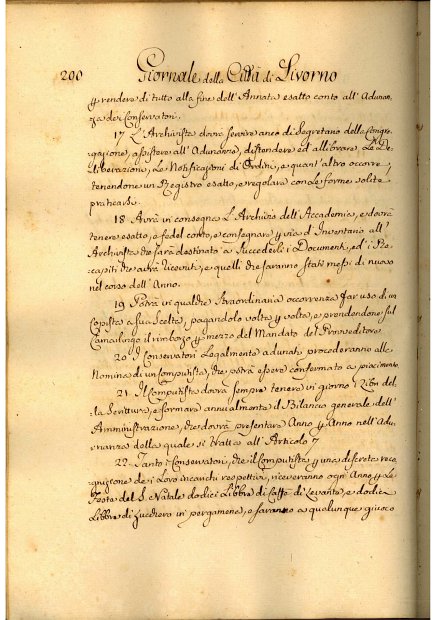 200 Giornale della Città di Livorno
p rendere di tutto alla fine dell'Annata esatto conto all'Adunan
za dei Conservatori.
17 L'Archivista dovrà servire anco di Segretario della Congre
gazione, assistere all'Adunanze, distendere ed allibrare le De
liberazioni, le Notificazioni di Ordini, e quant'altro occorre,
tenendone un Registro esatto, e regolare con le forme solite
praticarsi.
18 Avrà in consegna l'Archivio dell'Accademia, e dovrà
tenere esatto, e fedel conto, e consegnare p via d'Inventario all'
Archivista che sarà destinato a succederli i Documenti, ed i Re
capiti che avrà ricevuti, e quelli che saranno stati messi di nuovo
nel corso dell'Anno.
19 Potrà in qualche straordinaria occorrenza far uso di un
Copista a sua scelta, pagandolo volta p volta, e prendendone sul
Camarlingo il rimborzo p mezzo del Mandato del Provveditore
20 I Conservatori Legalmente adunati procederanno alla
Nomina di un Computista, che potrà essere confermato a piacimento
21 Il Computista dovrà sempre tenere in giorno i Libri del
la Scrittura, e formare annualmente il Bilancio generale dell'
Amministrazione, che dovrà presentare Anno p Anno nell'Adu
nanza della quale si tratta all'Articolo 7
22 Tanto i Conservatori, che il Computista p una discreta reco
gnizione dei Loro incarichi respettivi, riceveranno ogn'Anno p le
Feste del S. Natale dodici Libbre di Caffè di Levante, e dodici
Libbre di zucchero in pergamene, e saranno a qualunque giuoco